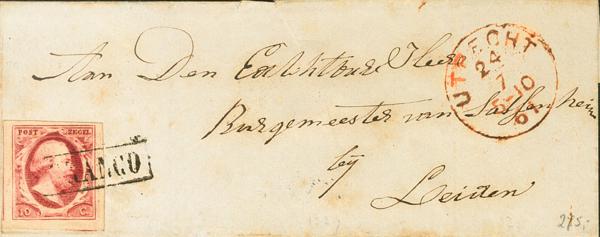 Aan Den Eachtbare Heer
Burgemeester van Sassenheim
by
Leiden
UTRECHT
24
7
5-10
61
POST ZEGEL
10 C.
FRANCO